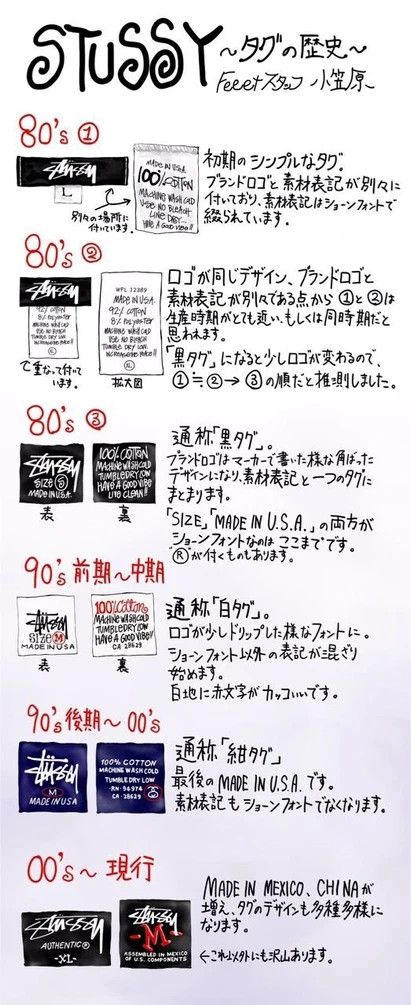 STUSSY ～タグの歴史～
Feeetスタッフ 小笠原
80's ①
STÜSSY
L
別々の場所に
付いています。
MADE IN U.S.A.
100% COTTON
MACHINE WASH COLD
USE NO BLEACH
LINE DRY...
HAVE A GOOD VIBE!!
初期のシンプルなタグ。
ブランドロゴと素材表記が別々に
付いており、素材表記はショーンフォントで
綴られています。
80's ②
STÜSSY
92% COTTON
8% POLYESTER
MACHINE WASH COLD
USE NO BLEACH
TUMBLE DRY LOW
XL
重なって付いて
います。
WPL 12389
MADE IN U.S.A.
92% COTTON
8% POLYESTER
MACHINE WASH COLD
USE NO BLEACH
TUMBLE DRY LOW
XL
拡大図
ロゴが同じデザイン、ブランドロゴと
素材表記が別々である点から①と②は
生産時期がとても近い、もしくは同時期だと
思われます。
「黒タグ」になると少しロゴが変わるので、
①≒②→③の順だと推測しました。
80's ③
STÜSSY
SIZE S
MADE IN U.S.A.
表
100% COTTON
MACHINE WASH COLD
TUMBLE DRY LOW
HAVE A GOOD VIBE
LITE CLEAN!!
裏
通称「黒タグ」。
ブランドロゴはマーカーで書いた様な角ばった
デザインになり、素材表記と一つのタグに
まとまります。
「SIZE」「MADE IN U.S.A.」の両方が
ショーンフォントなのはここまでです。
Ⓡが付くものもあります。
90's 前期～中期
STÜSSY
SIZE M
MADE IN USA
表
100% Cotton
MACHINE WASH COLD
TUMBLE DRY LOW
HAVE A GOOD VIBE!!
CA 28629
裏
通称「白タグ」。
ロゴが少しドリップした様なフォントに。
ショーンフォント以外の表記が混ざり
始めます。
白地に赤文字がカッコいいです。
90's 後期～00's
STÜSSY
M
MADE IN USA
100% COTTON
MACHINE WASH COLD
TUMBLE DRY LOW
-RN- 94974
CA- 28629
通称「紺タグ」
最後のMADE IN U.S.A.です。
素材表記もショーンフォントでなくなります。
00's～現行
STÜSSY
AUTHENTIC®
-XL-
STÜSSY
-M-
ASSEMBLED IN MEXICO
OF U.S. COMPONENTS
MADE IN MEXICO、CHINAが
増え、タグのデザインも多種多様に
なります。
←これ以外にも沢山あります。